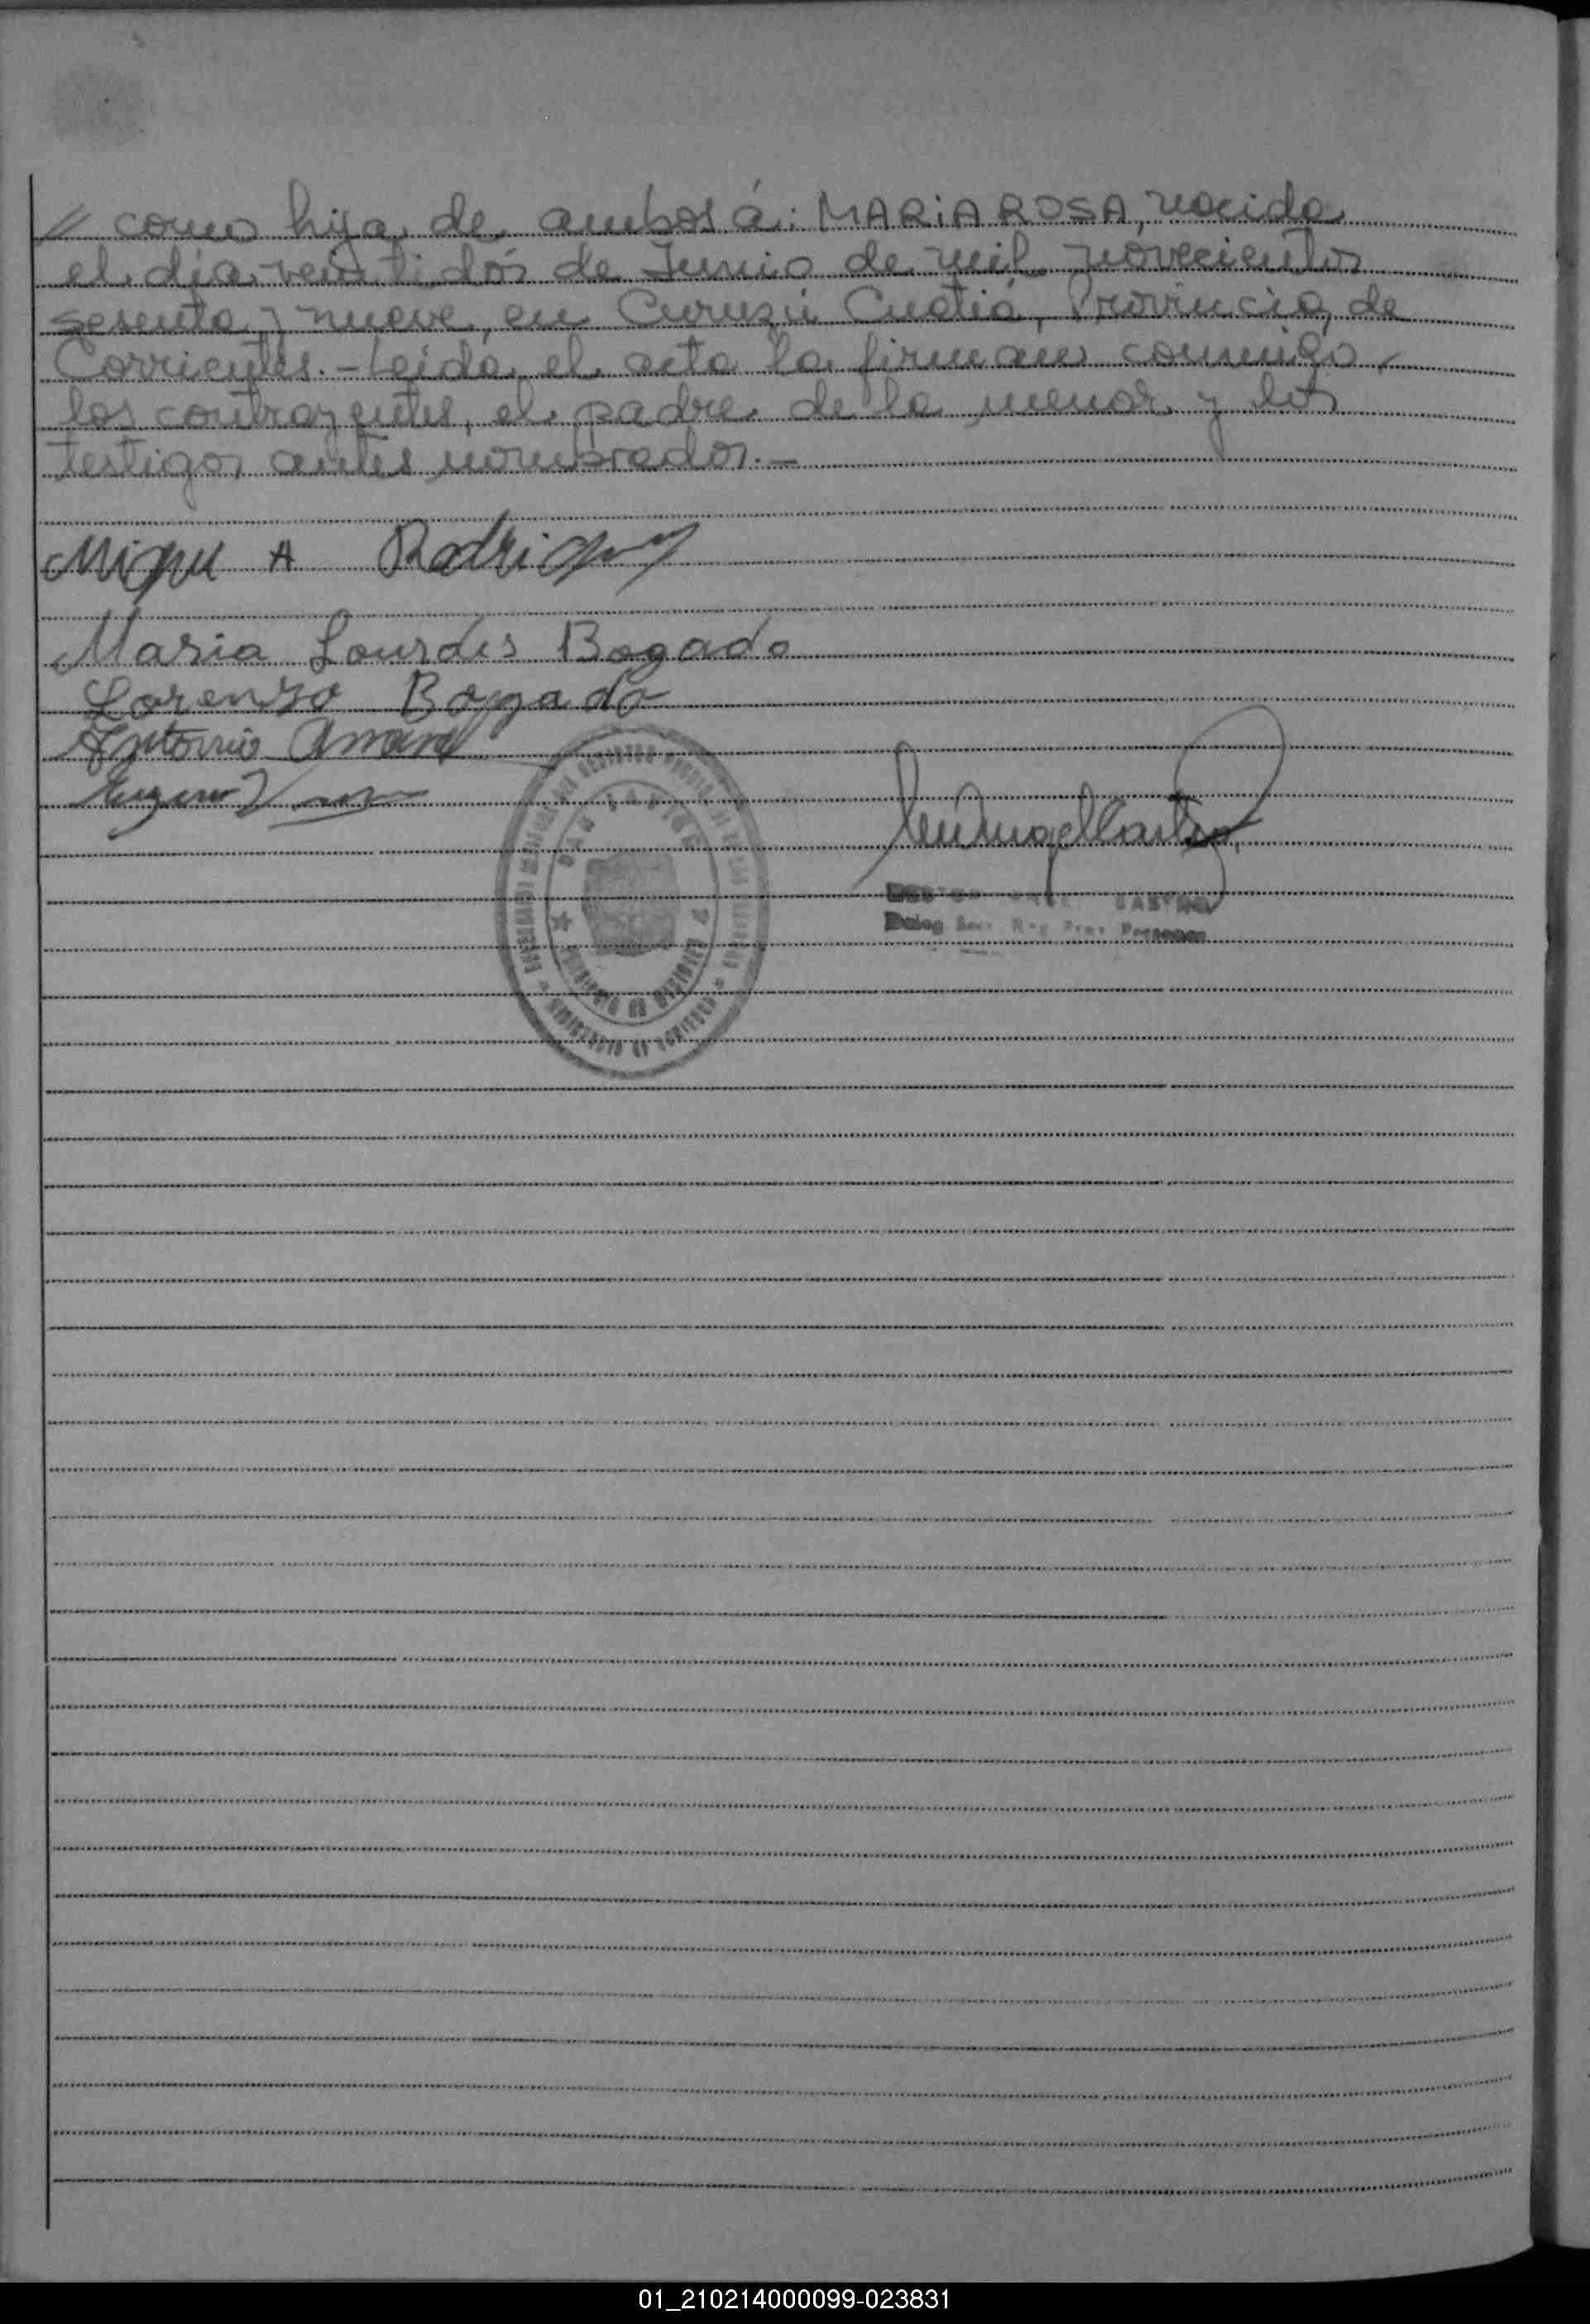 // como hija de ambos á: MARIA ROSA, nacida
el día veintidós de Junio de mil novecientos
sesenta y nueve, en Curuzú Cuatiá, Provincia de
Corrientes.- Leída el acta la firman conmigo,
los contrayentes, el padre de la menor y los
testigos antes nombrados.-
Miguel A Rodriguez
Maria Lourdes Bogado
Lorenzo Bogado
Antonio
CASTRO
Deleg Secc Reg Prov Personas
01_210214000099-023831